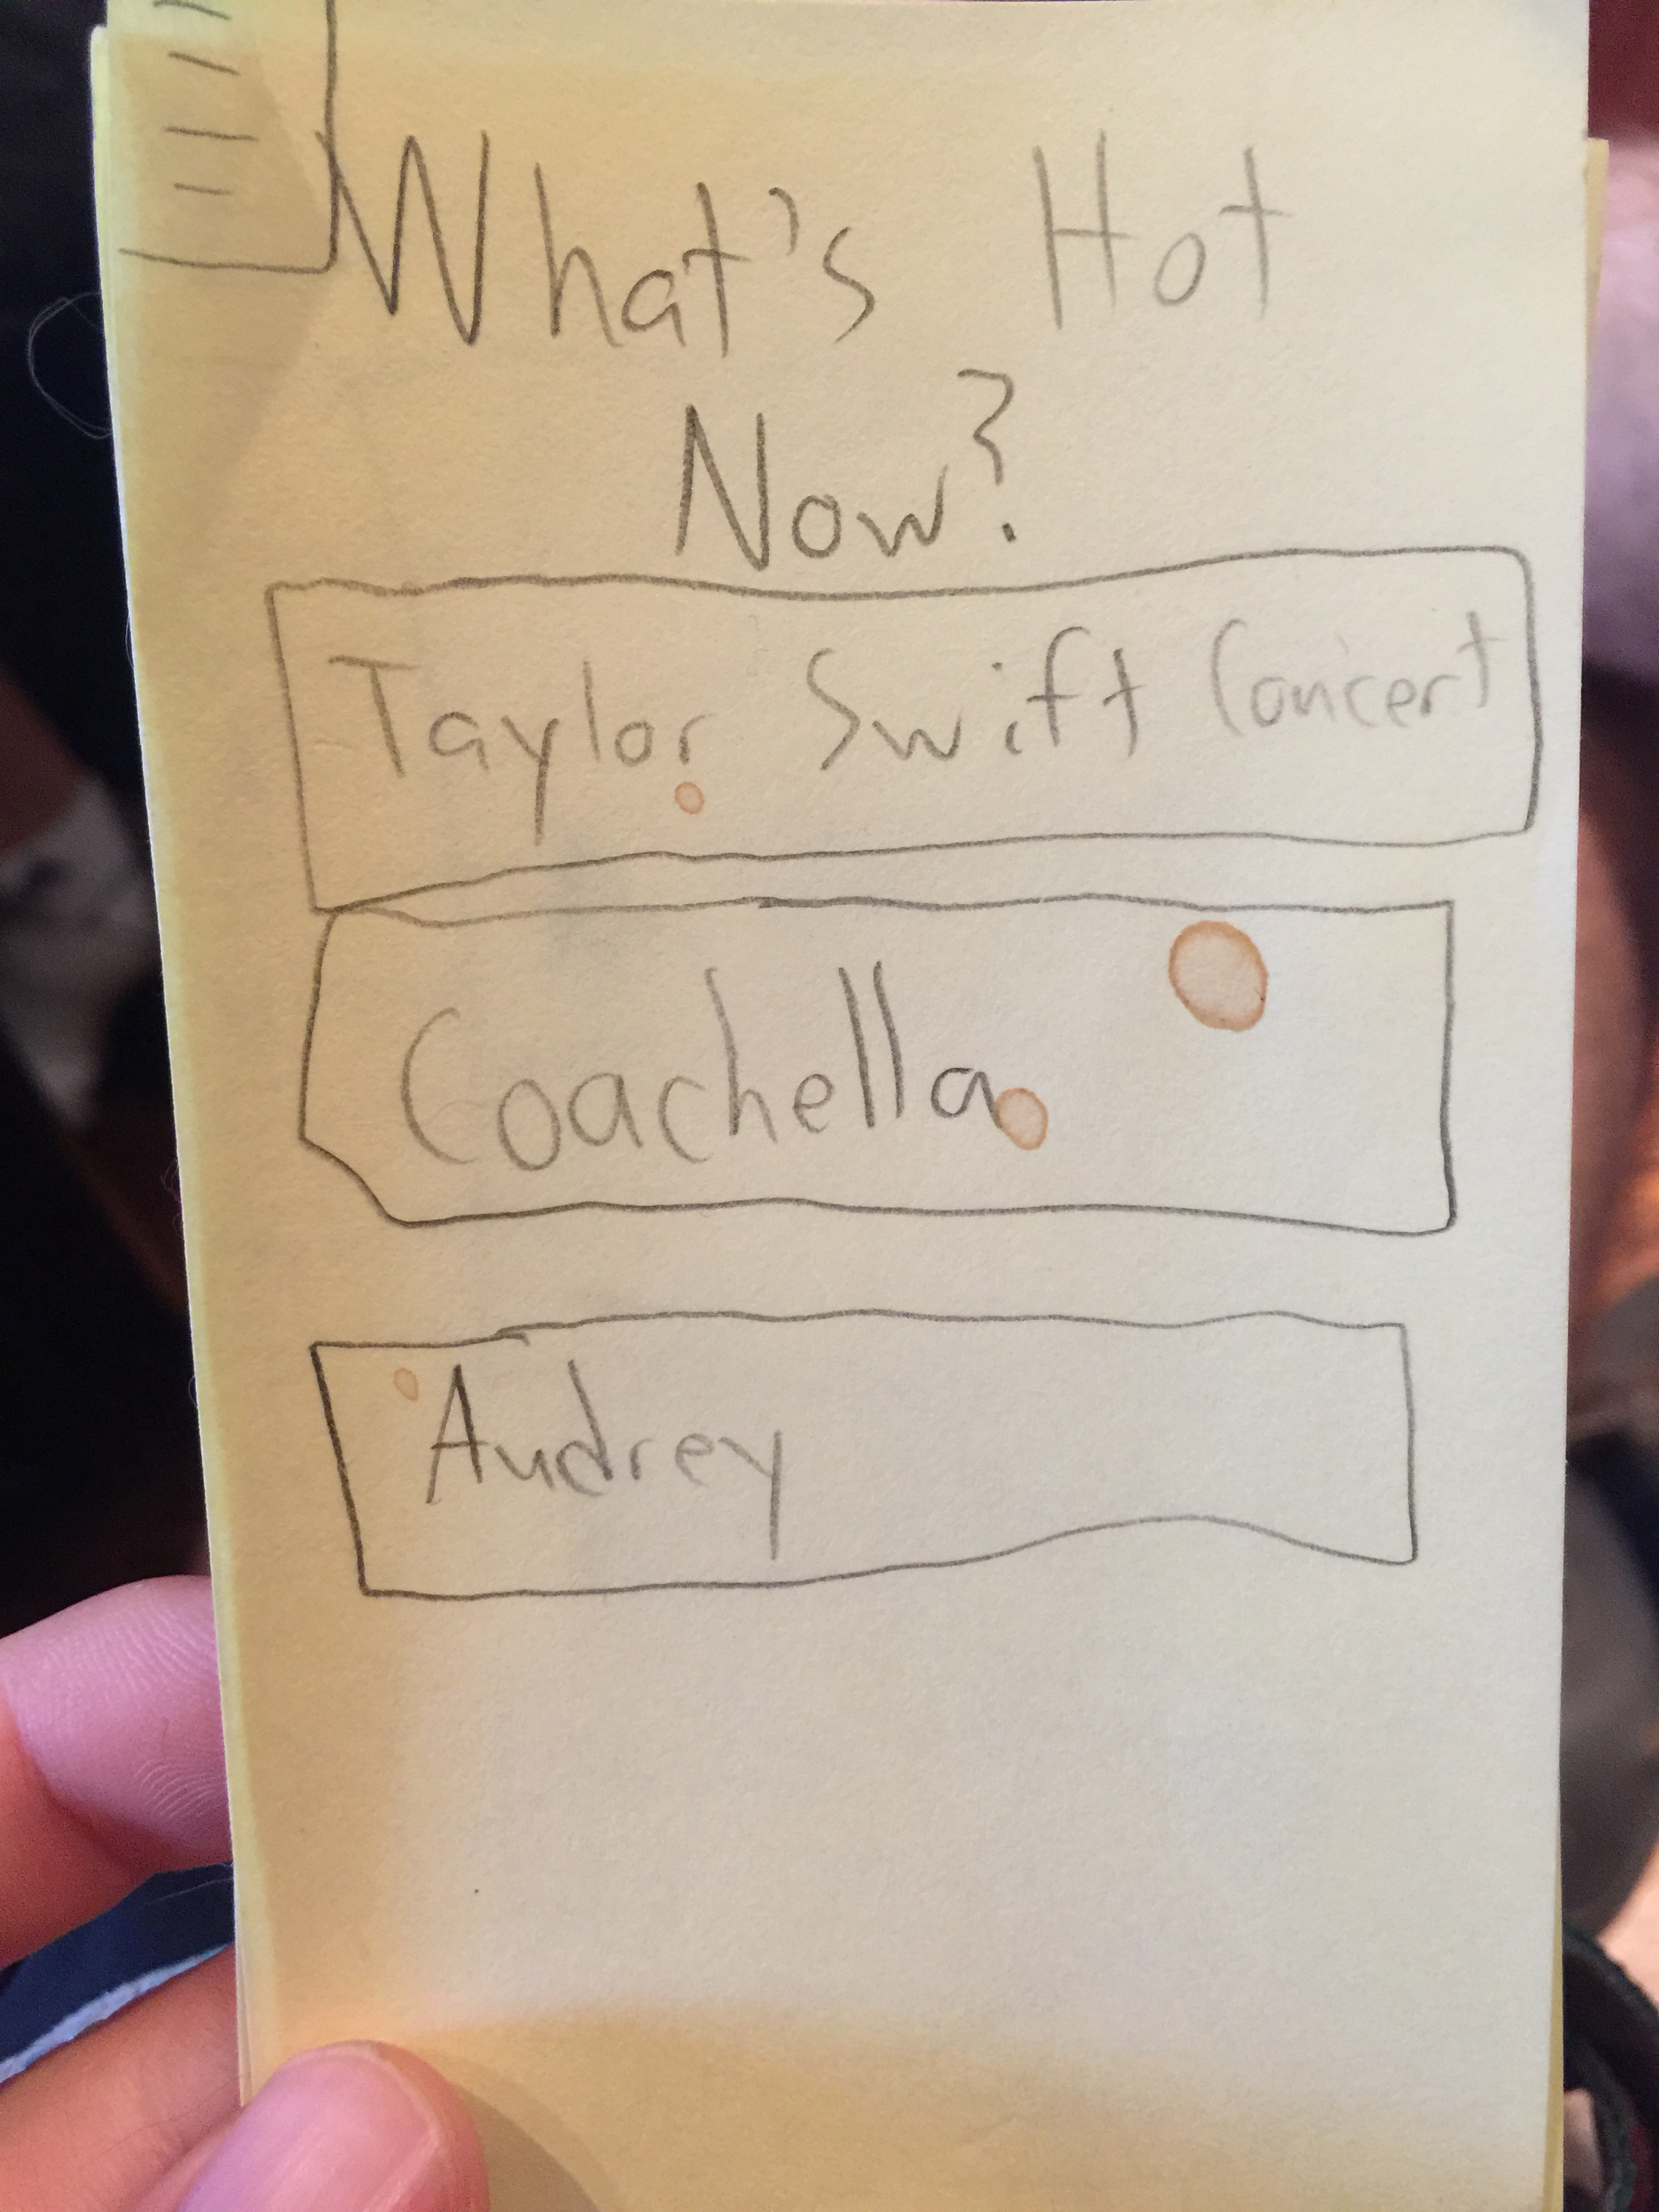 What's Hot
Now?
Taylor Swift Concert
Coachella
Audrey